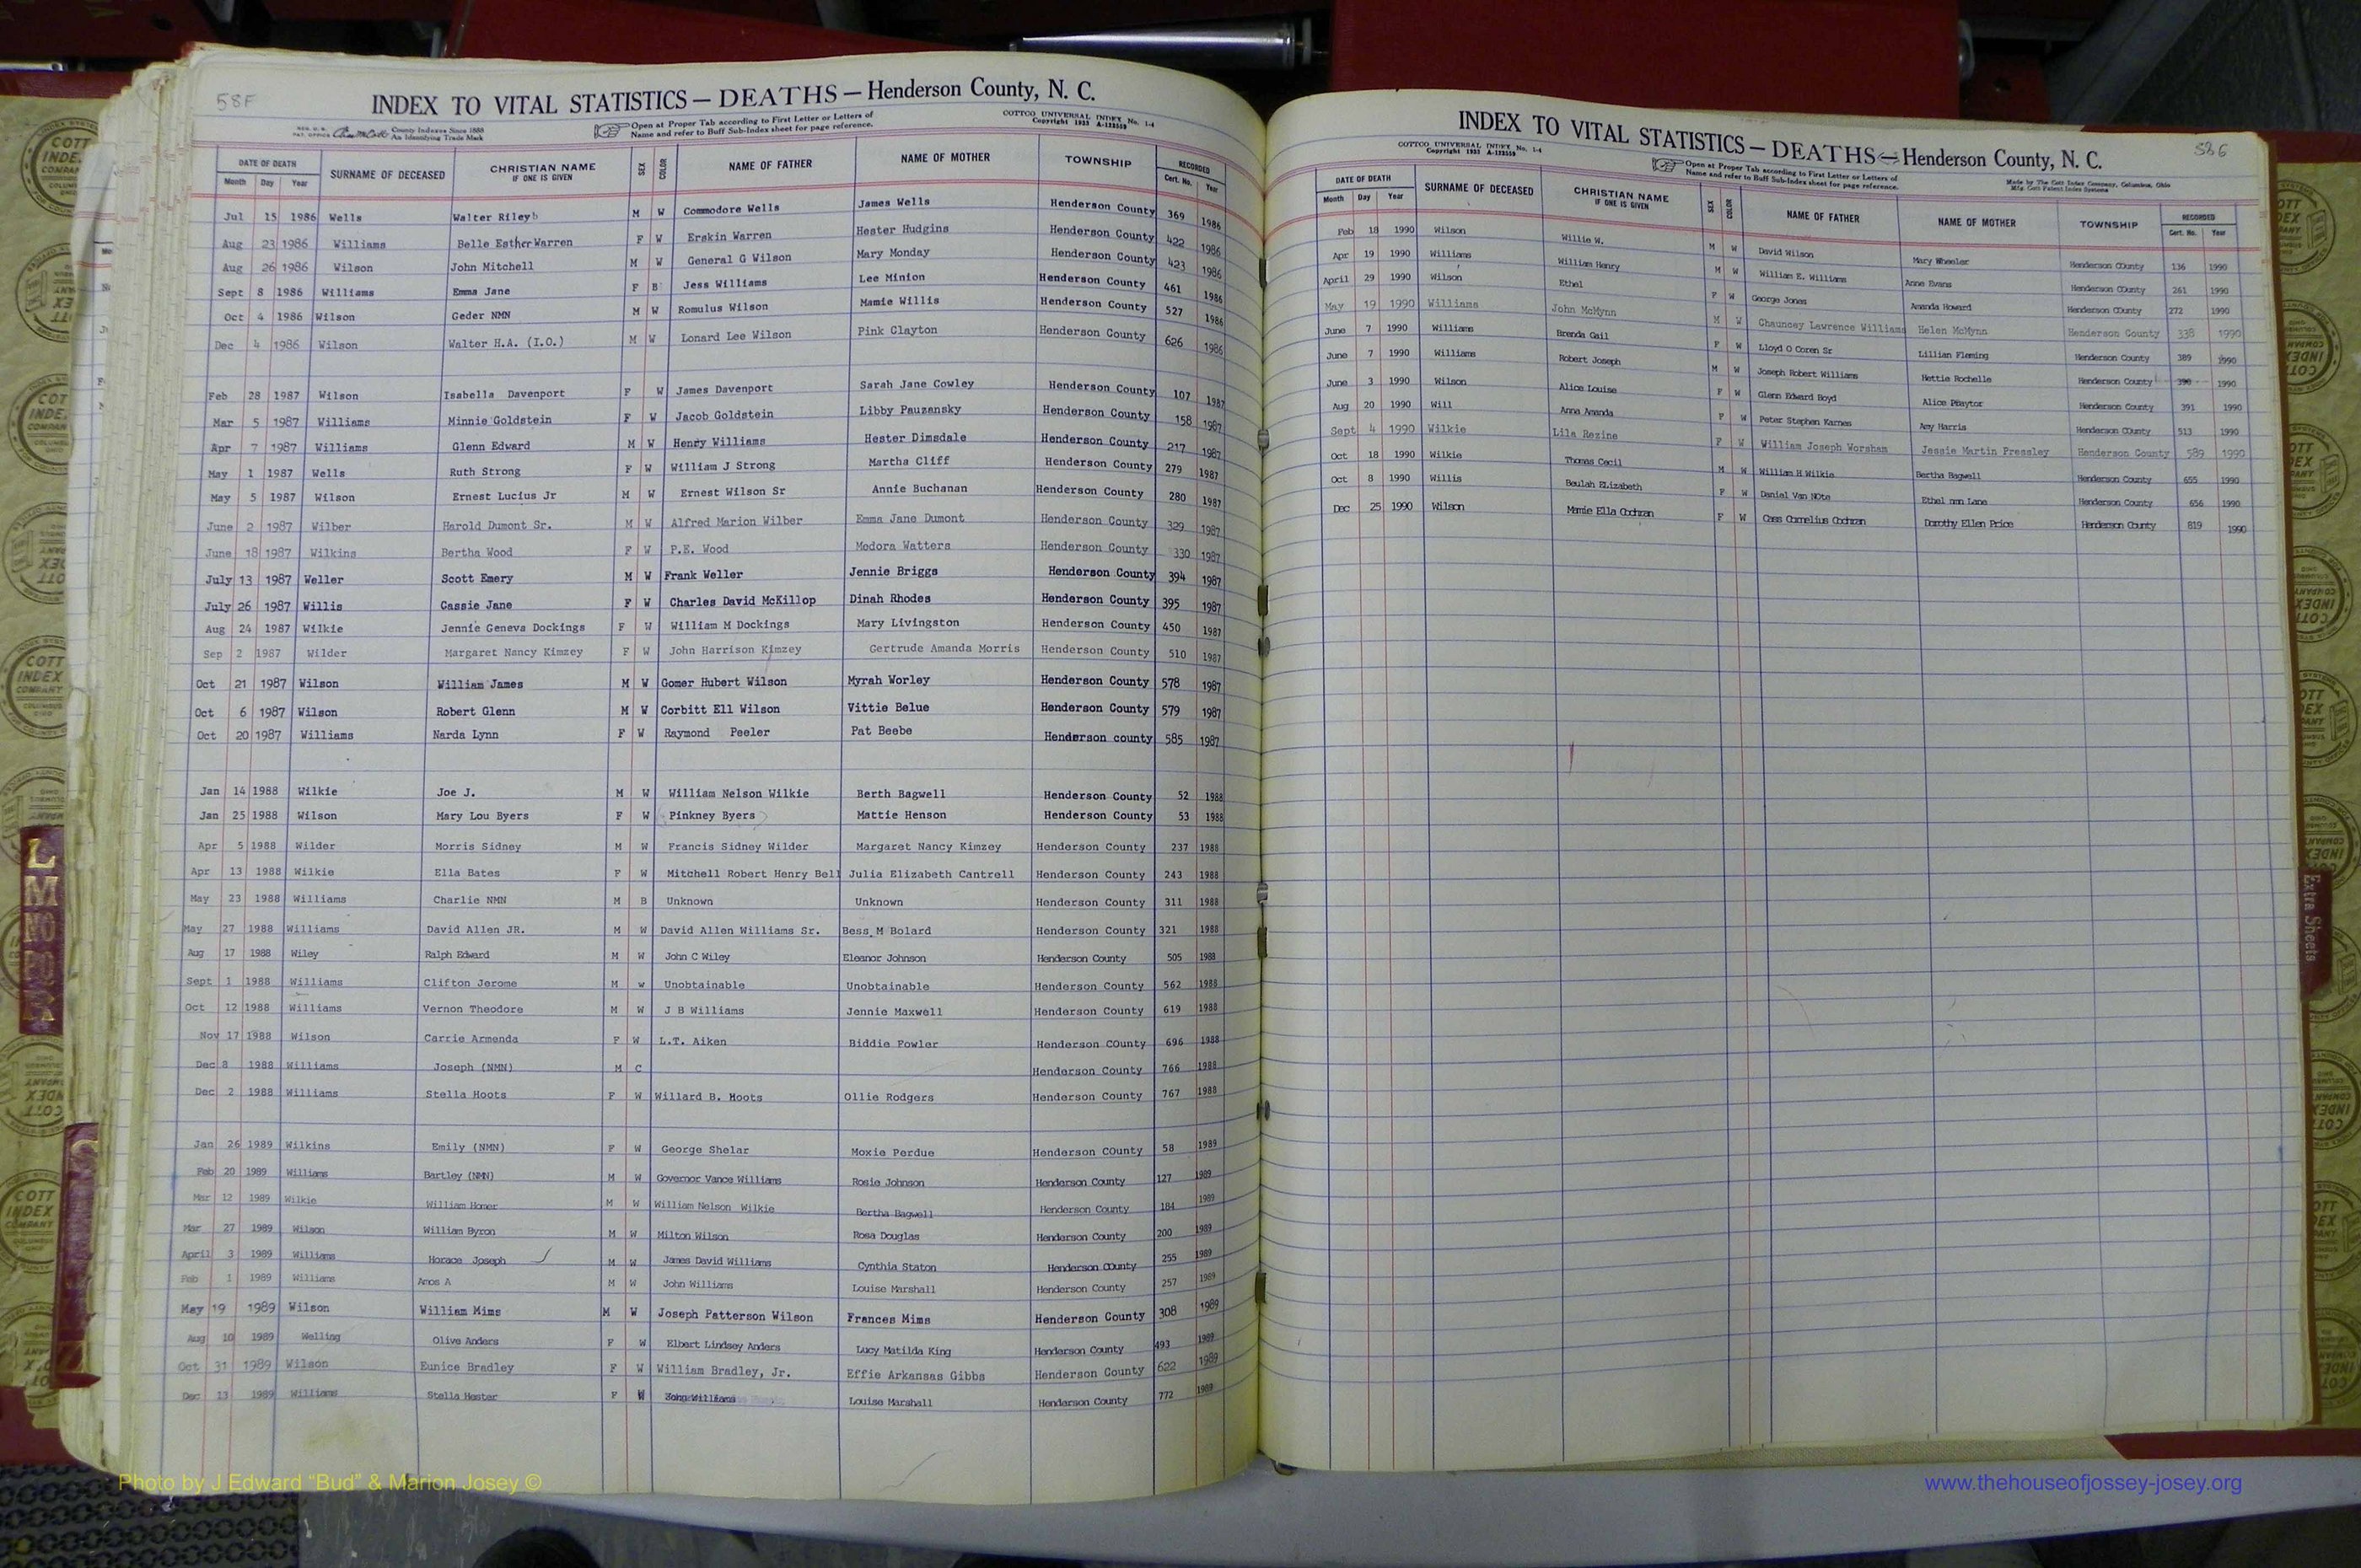 58F
INDEX TO VITAL STATISTICS — DEATHS — Henderson County, N. C.
County Indexes Since 1888
An Identifying Trade Mark
Open at Proper Tab according to First Letter or Letters of
Name and refer to Buff Sub-Index sheet for page reference.
COTTCO UNIVERSAL INDEX No. 1-4
Copyright 1933 A-123559
DATE OF DEATH SURNAME OF DECEASED CHRISTIAN NAME IF ONE IS GIVEN SEX COLOR NAME OF FATHER NAME OF MOTHER TOWNSHIP RECORDED
Month Day Year Cert. No. Year
Jul 15 1986 Wells Walter Riley M W Commodore Wells James Wells Henderson County 369 1986
Aug 23 1986 Williams Belle Esther Warren F W Erskin Warren Hester Hudgins Henderson County 422 1986
Aug 26 1986 Wilson John Mitchell M W General G Wilson Mary Monday Henderson County 423 1986
Sept 8 1986 Williams Emma Jane F B Jess Williams Lee Minion Henderson County 461 1986
Oct 4 1986 Wilson Geder NMN M W Romulus Wilson Mamie Willis Henderson County 527 1986
Dec 4 1986 Wilson Walter H.A. (I.O.) M W Lonard Lee Wilson Pink Clayton Henderson County 626 1986
Feb 28 1987 Wilson Isabella Davenport F W James Davenport Sarah Jane Cowley Henderson County 107 1987
Mar 5 1987 Williams Minnie Goldstein F W Jacob Goldstein Libby Pauzansky Henderson County 158 1987
Apr 7 1987 Williams Glenn Edward M W Henry Williams Hester Dimsdale Henderson County 217 1987
May 1 1987 Wells Ruth Strong F W William J Strong Martha Cliff Henderson County 279 1987
May 5 1987 Wilson Ernest Lucius Jr M W Ernest Wilson Sr Annie Buchanan Henderson County 280 1987
June 2 1987 Wilber Harold Dumont Sr. M W Alfred Marion Wilber Emma Jane Dumont Henderson County 329 1987
June 18 1987 Wilkins Bertha Wood F W P.E. Wood Medora Watters Henderson County 330 1987
July 13 1987 Weller Scott Emery M W Frank Weller Jennie Briggs Henderson County 394 1987
July 26 1987 Willis Cassie Jane F W Charles David McKillop Dinah Rhodes Henderson County 395 1987
Aug 24 1987 Wilkie Jennie Geneva Dockings F W William M Dockings Mary Livingston Henderson County 450 1987
Sep 2 1987 Wilder Margaret Nancy Kimzey F W John Harrison Kimzey Gertrude Amanda Morris Henderson County 510 1987
Oct 21 1987 Wilson William James M W Gomer Hubert Wilson Myrah Worley Henderson County 578 1987
Oct 6 1987 Wilson Robert Glenn M W Corbitt Ell Wilson Vittie Belue Henderson County 579 1987
Oct 20 1987 Williams Narda Lynn F W Raymond Peeler Pat Beebe Henderson county 585 1987
Jan 14 1988 Wilkie Joe J. M W William Nelson Wilkie Berth Bagwell Henderson County 52 1988
Jan 25 1988 Wilson Mary Lou Byers F W Pinkney Byers Mattie Henson Henderson County 53 1988
Apr 5 1988 Wilder Morris Sidney M W Francis Sidney Wilder Margaret Nancy Kimzey Henderson County 237 1988
Apr 13 1988 Wilkie Ella Bates F W Mitchell Robert Henry Bell Julia Elizabeth Cantrell Henderson County 243 1988
May 23 1988 Williams Charlie NMN M B Unknown Unknown Henderson County 311 1988
May 27 1988 Williams David Allen JR. M W David Allen Williams Sr. Bess M Bolard Henderson County 321 1988
Aug 17 1988 Wiley Ralph Edward M W John C Wiley Eleanor Johnson Henderson County 505 1988
Sept 1 1988 Williams Clifton Jerome M w Unobtainable Unobtainable Henderson County 562 1988
Oct 12 1988 Williams Vernon Theodore M W J B Williams Jennie Maxwell Henderson County 619 1988
Nov 17 1988 Wilson Carrie Armenda F W L.T. Aiken Biddie Fowler Henderson COunty 696 1988
Dec 8 1988 Williams Joseph (NMN) M C Henderson County 766 1988
Dec 2 1988 Williams Stella Hoots F W Willard B. Hoots Ollie Rodgers Henderson County 767 1988
Jan 26 1989 Wilkins Emily (NMN) F W George Shelar Moxie Perdue Henderson COunty 58 1989
Feb 20 1989 Williams Bartley (NMN) M W Governor Vance Williams Rosie Johnson Henderson County 127 1989
Mar 12 1989 Wilkie William Homer M W William Nelson Wilkie Bertha Bagwell Henderson County 184 1989
Mar 27 1989 Wilson William Byron M W Milton Wilson Rosa Douglas Henderson County 200 1989
April 3 1989 Williams Horace Joseph M W James David Williams Cynthia Staton Henderson COunty 255 1989
Feb 1 1989 Williams Amos A M W John Williams Louise Marshall Henderson County 257 1989
May 19 1989 Wilson William Mims M W Joseph Patterson Wilson Frances Mims Henderson County 308 1989
Aug 10 1989 Welling Olive Anders F W Elbert Lindsey Anders Lucy Matilda King Henderson County 493 1989
Oct 31 1989 Wilson Eunice Bradley F W William Bradley, Jr. Effie Arkansas Gibbs Henderson County 622 1989
Dec 13 1989 Williams Stella Hester F W Louise Marshall Henderson County 772 1989
586
INDEX TO VITAL STATISTICS — DEATHS — Henderson County, N. C.
COTTCO UNIVERSAL INDEX No. 1-4
Copyright 1933 A-123559
Open at Proper Tab according to First Letter or Letters of
Name and refer to Buff Sub-Index sheet for page reference.
Made by The Cott Index Company, Columbus, Ohio
Mfg. Cott Patent Index Systems
DATE OF DEATH SURNAME OF DECEASED CHRISTIAN NAME IF ONE IS GIVEN SEX COLOR NAME OF FATHER NAME OF MOTHER TOWNSHIP RECORDED
Month Day Year Cert. No. Year
Feb 18 1990 Wilson Willie W. M W David Wilson Mary Wheeler Henderson COunty 136 1990
Apr 19 1990 Williams William Henry M W William E. Williams Anne Evans Henderson COunty 261 1990
April 29 1990 Wilson Ethel F W George Jones Amanda Howard Henderson COunty 272 1990
May 19 1990 Williams John McMynn M W Chauncey Lawrence Williams Helen McMynn Henderson County 338 1990
June 7 1990 Williams Brenda Gail F W Lloyd O Coren Sr Lillian Fleming Henderson County 389 1990
June 7 1990 Williams Robert Joseph M W Joseph Robert Williams Hettie Rochelle Henderson COunty 390 1990
June 3 1990 Wilson Alice Louise F W Glenn Edward Boyd Alice Henderson County 391 1990
Aug 20 1990 Will Anna Amanda F W Peter Stephen Karnes Amy Harris Henderson COunty 513 1990
Sept 4 1990 Wilkie Lila Rezine F W William Joseph Worsham Jessie Martin Pressley Henderson County 589 1990
Oct 18 1990 Wilkie Thomas Cecil M W William H Wilkie Bertha Bagwell Henderson County 655 1990
Oct 8 1990 Willis Beulah ELizabeth F W Daniel Van NOte Ethel nmn Lane Henderson County 656 1990
Dec 25 1990 Wilson Mamie Ella Cochran F W Cass Cornelius Cochran Dorothy Ellen Price Henderson County 819 1990
L
M
Extra Sheets
COTT
INDEX
COMPANY
Photo by J Edward “Bud” & Marion Josey ©
www.thehouseofjossey-josey.org